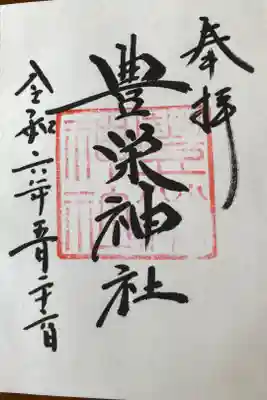 奉拝
豊栄神社
令和六年五月二十六日